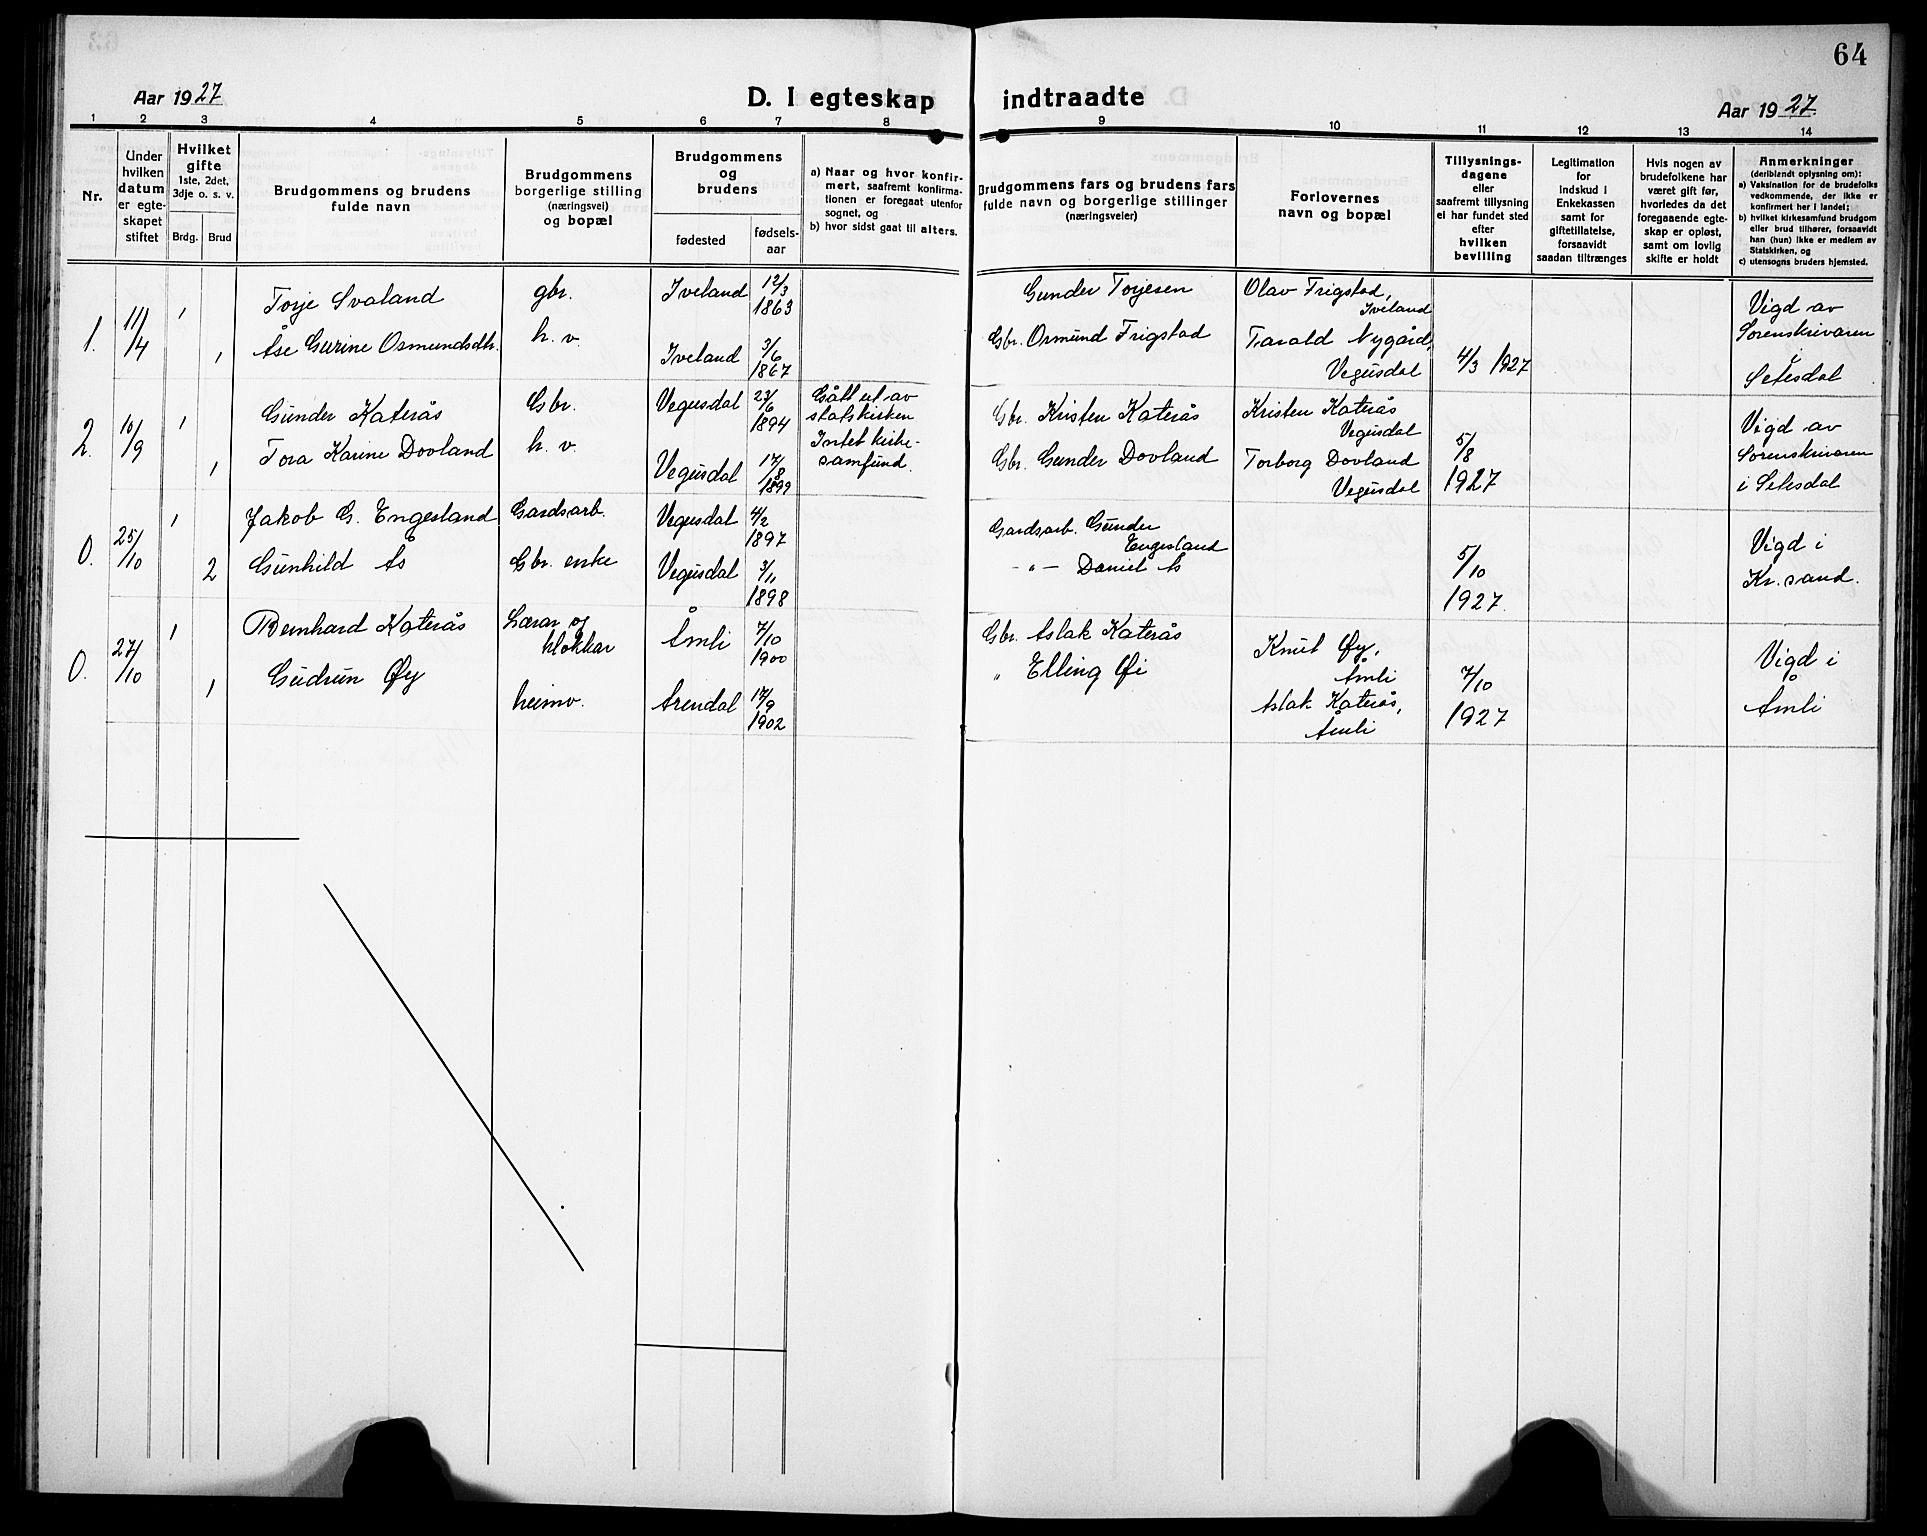 64
Aar 1927
D. I egteskap
indtraadte
Aar 1927.
1 2 3 4 5 6 7 8
9 10 11 12 13 14
Nr.
Under
hvilken
datum
er egte-
skapet
stiftet
Hvilket
gifte
1ste, 2det,
3dje o. s. v.
Brdg. Brud
Brudgommens og brudens
fulde navn
Brudgommens
borgerlige stilling
(næringsvei)
og bopæl
Brudgommens
og
brudens
fødested
fødsels-
aar
a) Naar og hvor konfir-
mert, saafremt konfirma-
tionen er foregaat utenfor
sognet, og
b) hvor sidst gaat til alters.
Brudgommens fars og brudens fars
fulde navn og borgerlige stillinger
(næringsveier)
Forlovernes
navn og bopæl
Tillysnings-
dagene
eller
saafremt tillysning
ei har fundet sted
efter
hvilken
bevilling
Legitimation
for
Indskud i
Enkekassen
samt for
giftetillatelse,
forsaavidt
saadan tiltrænges
Hvis nogen av
brudefolkene har
været gift før,
hvorledes da det
foregaaende egte-
skap er opløst,
samt om lovlig
skifte er holdt
Anmerkninger
(deriblandt oplysning om):
a) Vaksination for de brudefolks
vedkommende, der ikke er
konfirmert her i landet;
b) hvilket kirkesamfund brudgom
eller brud tilhører, forsaavidt
han (hun) ikke er medlem av
Statskirken, og
c) utensogns bruders hjemsted.
1.
11/4
1
Torje Svaland
gbr.
Iveland
12/3
1863
Gunder Torjesen
Olav Frigstad,
Iveland
1
Åse Gurine Osmundsdtr.
h. v.
Iveland
3/6
1867
Gbr. Osmund Frigstad
Tarald Nygård,
Vegusdal
4/3 1927
Vigd av
Sorenskrivaren
i
Setesdal
2.
10/9
1
Gunder Katerås
Gbr.
Vegusdal
23/6
1894
Gått ut av
statskirken
Intet kirke-
samfund.
Gbr. Kristen Katerås
Kristen Katerås
Vegusdal
1
Tora Karine Dovland
h. v.
Vegusdal
17/8
1899
Gbr. Gunder Dovland
Torborg Dovland
Vegusdal
5/8
1927
Vigd av
Sorenskrivaren
i Setesdal
0.
25/10
1
Jakob G. Engesland
Gardsarb.
Vegusdal
4/2
1897
Gardsarb. Gunder
Engesland
2
Gunhild Ås
Gbr. enke
Vegusdal
3/11
1898
- " - Daniel Ås
5/10
1927.
Vigd i
Kr. sand.
0.
27/10
1
Bernhard Katerås
Lærar og
klokkar
Åmli
7/10
1900
Gbr. Aslak Katerås
Knut Øy,
Åmli
1
Gudrun Øy
heimv.
Arendal
17/9
1902
" Elling Øi
Aslak Katerås,
Åmli
7/10
1927
Vigd i
Åmli